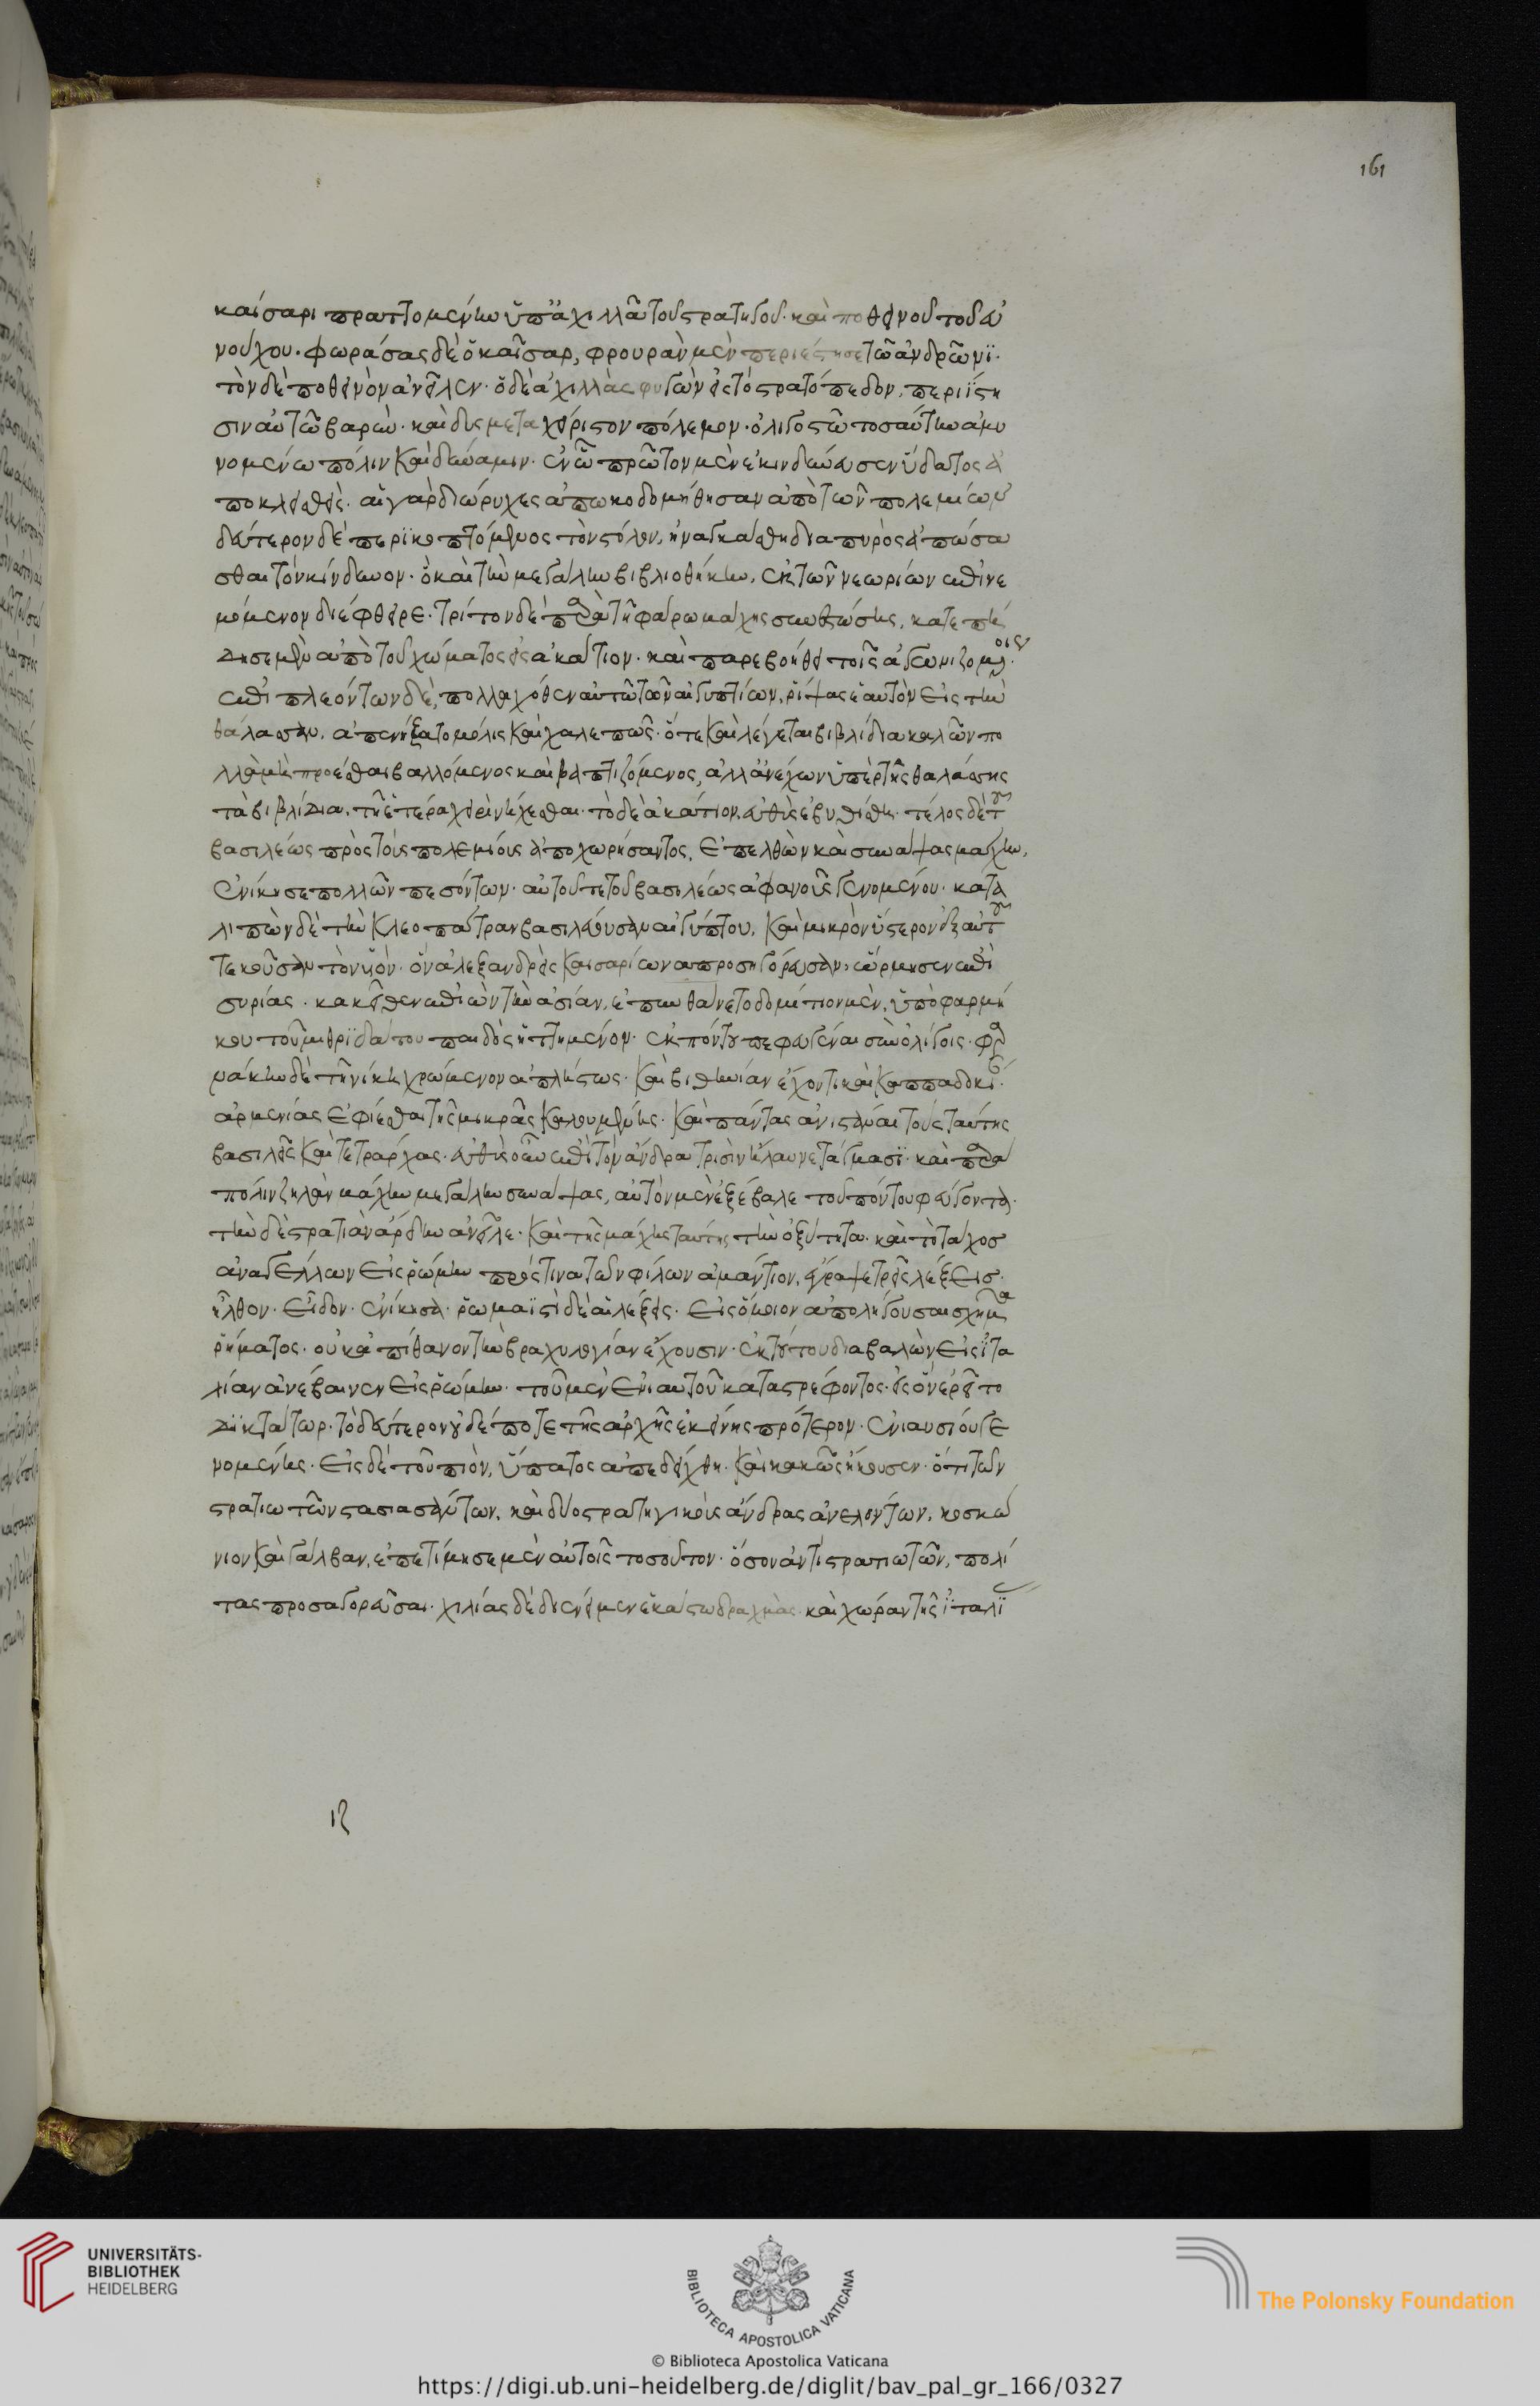 161
καίσαρι πραττομένην ὑπ' ἀχιλλᾶ τοῦ στρατηγοῦ· καὶ ποθεινοῦ τοῦ εὐ
νούχου· φωράσας δὲ ὁ καῖσαρ, φρουρὰν μὲν περιέστησε τῶ ἀνδρῶνϊ·
τὸν δὲ ποθεινὸν ἀνεῖλεν· ὁ δὲ ἀχιλλὰς φυγὼν εἰς τὸ στρατόπεδον, περιΐστη
σιν αὐτῶ βαρὺν· καὶ δυσμεταχείριστον πόλεμον· ὀλιγοστῶ τοσαύτην ἀμυ
νομένω πόλιν καὶ δύναμιν· ἐν ὧ πρῶτον μὲν ἐκινδύνευσεν ὕδατος ἀ
ποκλεισθεὶς· αἱ γὰρ διώρυχες ἀπωκοδομήθησαν ἀπὸ τῶν πολεμίων
δεύτερον δὲ περϊκοπτόμενος τὸν στόλον, ἠναγκάσθη διαπυρὸς ἀπώσα
σθαι τὸν κίνδυνον· ὃ καὶ τὴν μεγάλην βιβλιοθήκην, ἐκ τῶν νεωρίων ἐπινε
μόμενον διέφθειρε· τρίτον δὲ παρὰ τῆ φάρω μάχης συνεστώσης, κατεπή
δησε μὲν ἀπὸ τοῦ χώματος εἰς ἀκάτιον· καὶ παρεβοήθει τοῖς ἀγωνιζομένοις·
ἐπιπλεόντων δὲ, πολλαχόθεν αὐτῶ τῶν αἰγυπτίων, ῥίψας ἑαυτὸν εἰς τὴν
θάλασσαν, ἀπενήξατο μόλις καὶ χαλεπῶς· ὅτε καὶ λέγεται βιβλίδια κρατῶν πο
λλὰ μὴ προέσθαι βαλλόμενος καὶ βαπτιζόμενος, ἀλλ' ἀνέχων ὑπὲρ τῆς θαλάσσης
τὰ βιβλίδια, τῆ ἑτέρα χειρὶ νήχεσθαι· τὸ δὲ ἀκάτιον, εὐθὺς ἐβυθίσθη· τέλος δὲ τοῦ
βασιλέως πρὸς τοὺς πολεμίους ἀποχωρήσαντος, ἐπελθὼν καὶ συνάψας μάχην,
ἐνίκησε πολλῶν πεσόντων· αὐτοῦ τε τοῦ βασιλέως ἀφανοῦς γενομένου· κατα
λιπὼν δὲ τὴν κλεοπάτραν βασιλεύουσαν αἰγύπτου, καὶ μικρὸν ὕστερον ἐξ αὐτοῦ
τεκοῦσαν τὸν υἱόν· ὃν ἀλεξανδρεῖς καισαρίωνα προσηγόρευσαν, ὥρμησεν ἐπὶ
συρίας· κακεῖθεν ἐπιὼν τὴν ἀσίαν, ἐπυνθάνετο δομίτιον μὲν, ὑπὸ φαρνά
κου τοῦ μιθρϊδάτου παιδὸς ἡττημένον· ἐκ πόντου πεφευγέναι σὺν ὀλίγοις· φαρ
νάκην δὲ τῆ νίκη χρώμενον ἀπλήστως· καὶ βιθυνίαν ἔχοντα καὶ καππαδοκί·
ἀρμενίας ἐφίεσθαι τῆς μικρᾶς καλουμένης· καὶ πάντας ἀνιστάναι τοὺς ταύτης
βασιλεῖς καὶ τετράρχας· εὐθὺς οὖν ἐπὶ τὸν ἄνδρα τρισὶν ἤλαυνε τάγμασϊ· καὶ παρὰ
πόλιν ζῆλαν μάχην μεγάλην συνάψας, αὐτὸν μὲν ἐξέβαλε τοῦ πόντου φεύγοντα·
τὴν δὲ στρατιὰν ἄρδην ἀνεῖλε· καὶ τῆς μάχης ταύτης τὴν ὀξύτητα· καὶ τὸ τάχος
ἀναγέλλων εἰς ῥώμην πρός τινα τῶν φίλων ἀμάντιον, ἔγραψε τρεῖς λέξεις·
ἦλθον· εἶδον· ἐνίκησα· ῥωμαϊστὶ δὲ αἱ λέξεις· εἰς ὅμοιον ἀπολήγουσαι σχῆμα
ῥήματος· οὐκ ἀπίθανον τὴν βραχυλογίαν ἔχουσιν· ἐκ τούτου διαβαλὼν εἰς ἰτα
λίαν ἀνέβαινεν εἰς ῥώμην· τοῦ μὲν ἐνιαυτοῦ καταστρέφοντος· εἰς ὃν ἥρητο
δϊκτάτωρ· τὸ δεύτερον οὐδέποτε τῆς ἀρχῆς ἐκείνης πρότερον· ἐνιαυσίου γε
νομένης· εἰς δὲ τοὐπιὸν, ὕπατος ἀπεδείχθη· καὶ κακῶς ἤκουσεν· ὅτι τῶν
στρατιωτῶν στασιασάντων, καὶ δύο στρατηγικοὺς ἄνδρας ἀνελόντων, κοσκώ
νιον καὶ γάλβαν, ἐπετίμησε μὲν αὐτοῖς τοσοῦτον· ὅσον ἀντὶ στρατιωτῶν, πολί
τας προσαγορεῦσαι· χιλίας δὲ διένειμεν ἑκάστω δραχμὰς· καὶ χώραν τῆς ἰταλϊ
ις
UNIVERSITÄTS-
BIBLIOTHEK
HEIDELBERG
BIBLIOTECA APOSTOLICA VATICANA
The Polonsky Foundation
© Biblioteca Apostolica Vaticana
https://digi.ub.uni-heidelberg.de/diglit/bav_pal_gr_166/0327